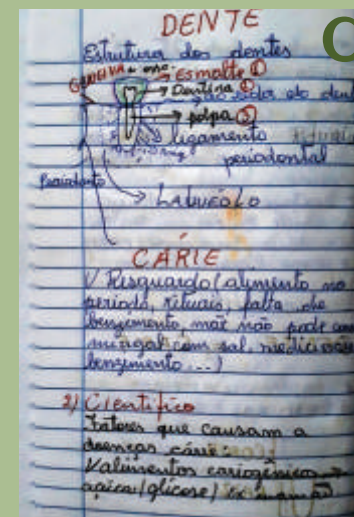 DENTE
Estrutura dos dentes
GENGIVA
Esmalte ①
Dentina ②
polpa ③
ligamento
periodontal
Periodonto
ALVÉOLO
CÁRIE
1/ Resguardo (alimento no
período, rituais, falta de
benzimento, mãe não pode
mingal com sal,
benzimento ...)
2) Científico
Fatores que causam a
doenças cárie:
alimentos cariogênicos →
açúcar/glicose/
C